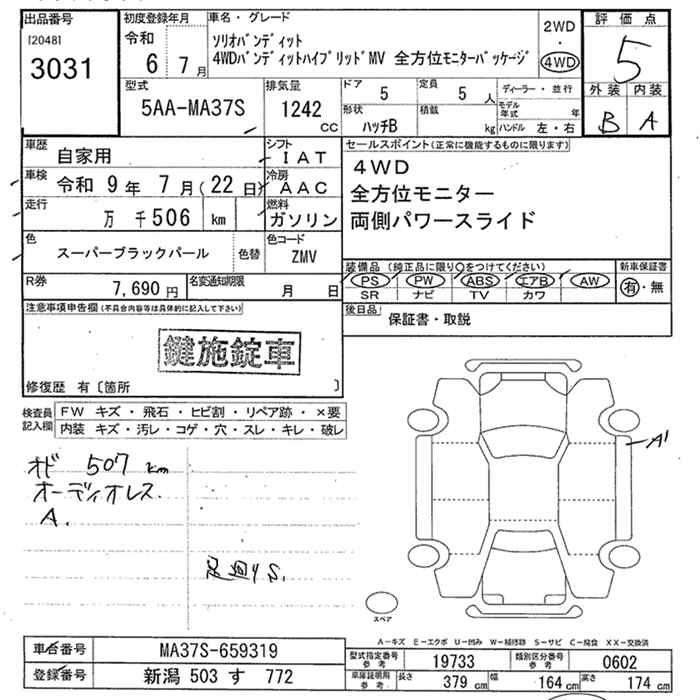 出品番号
[2048]
3031
初度登録年月
令和
6 7月
車名・グレード
ソリオバンディット
4WDバンディットハイブリッドMV 全方位モニターパッケージ
2WD
・
4WD
評価点
5
外装 内装
B A
型式
5AA-MA37S
排気量
1242
cc
ドア
5
定員
5 人
形状
ハッチB
積載
kg
ディーラー・並行
モデル年式 年
ハンドル 左・右
車歴
自家用
シフト
IAT
車検
令和 9年 7月(22日)
冷房
AAC
走行
万 千506 km
燃料
ガソリン
色
スーパーブラックパール
色替
色コード
ZMV
R券
7,690円
名変通知期限
月 日
セールスポイント(正常に機能するものに限ります)
4WD
全方位モニター
両側パワースライド
装備品 (純正品に限り○をつけてください)
PS PW ABS エアB AW
SR ナビ TV カワ
新車保証書
有・無
後日品
保証書・取説
注意事項申告欄(不具合内容等は具体的に記入して下さい)
鍵施錠車
修復歴 有〔箇所 〕
検査員
記入欄
FW キズ・飛石・ヒビ割・リペア跡・×要
内装 キズ・汚レ・コゲ・穴・スレ・キレ・破レ
オド 507 km
オーディオレス
A.
足廻りS.
A1
スペア
A-キズ E-エクボ U-凹み W-補修跡 S-サビ C-腐食 XX-交換済
車台番号
MA37S-659319
登録番号
新潟 503 す 772
型式指定番号
参考
19733
類別区分番号
参考
0602
車庫証明用
参考
長さ
379 cm
幅
164 cm
高さ
174 cm